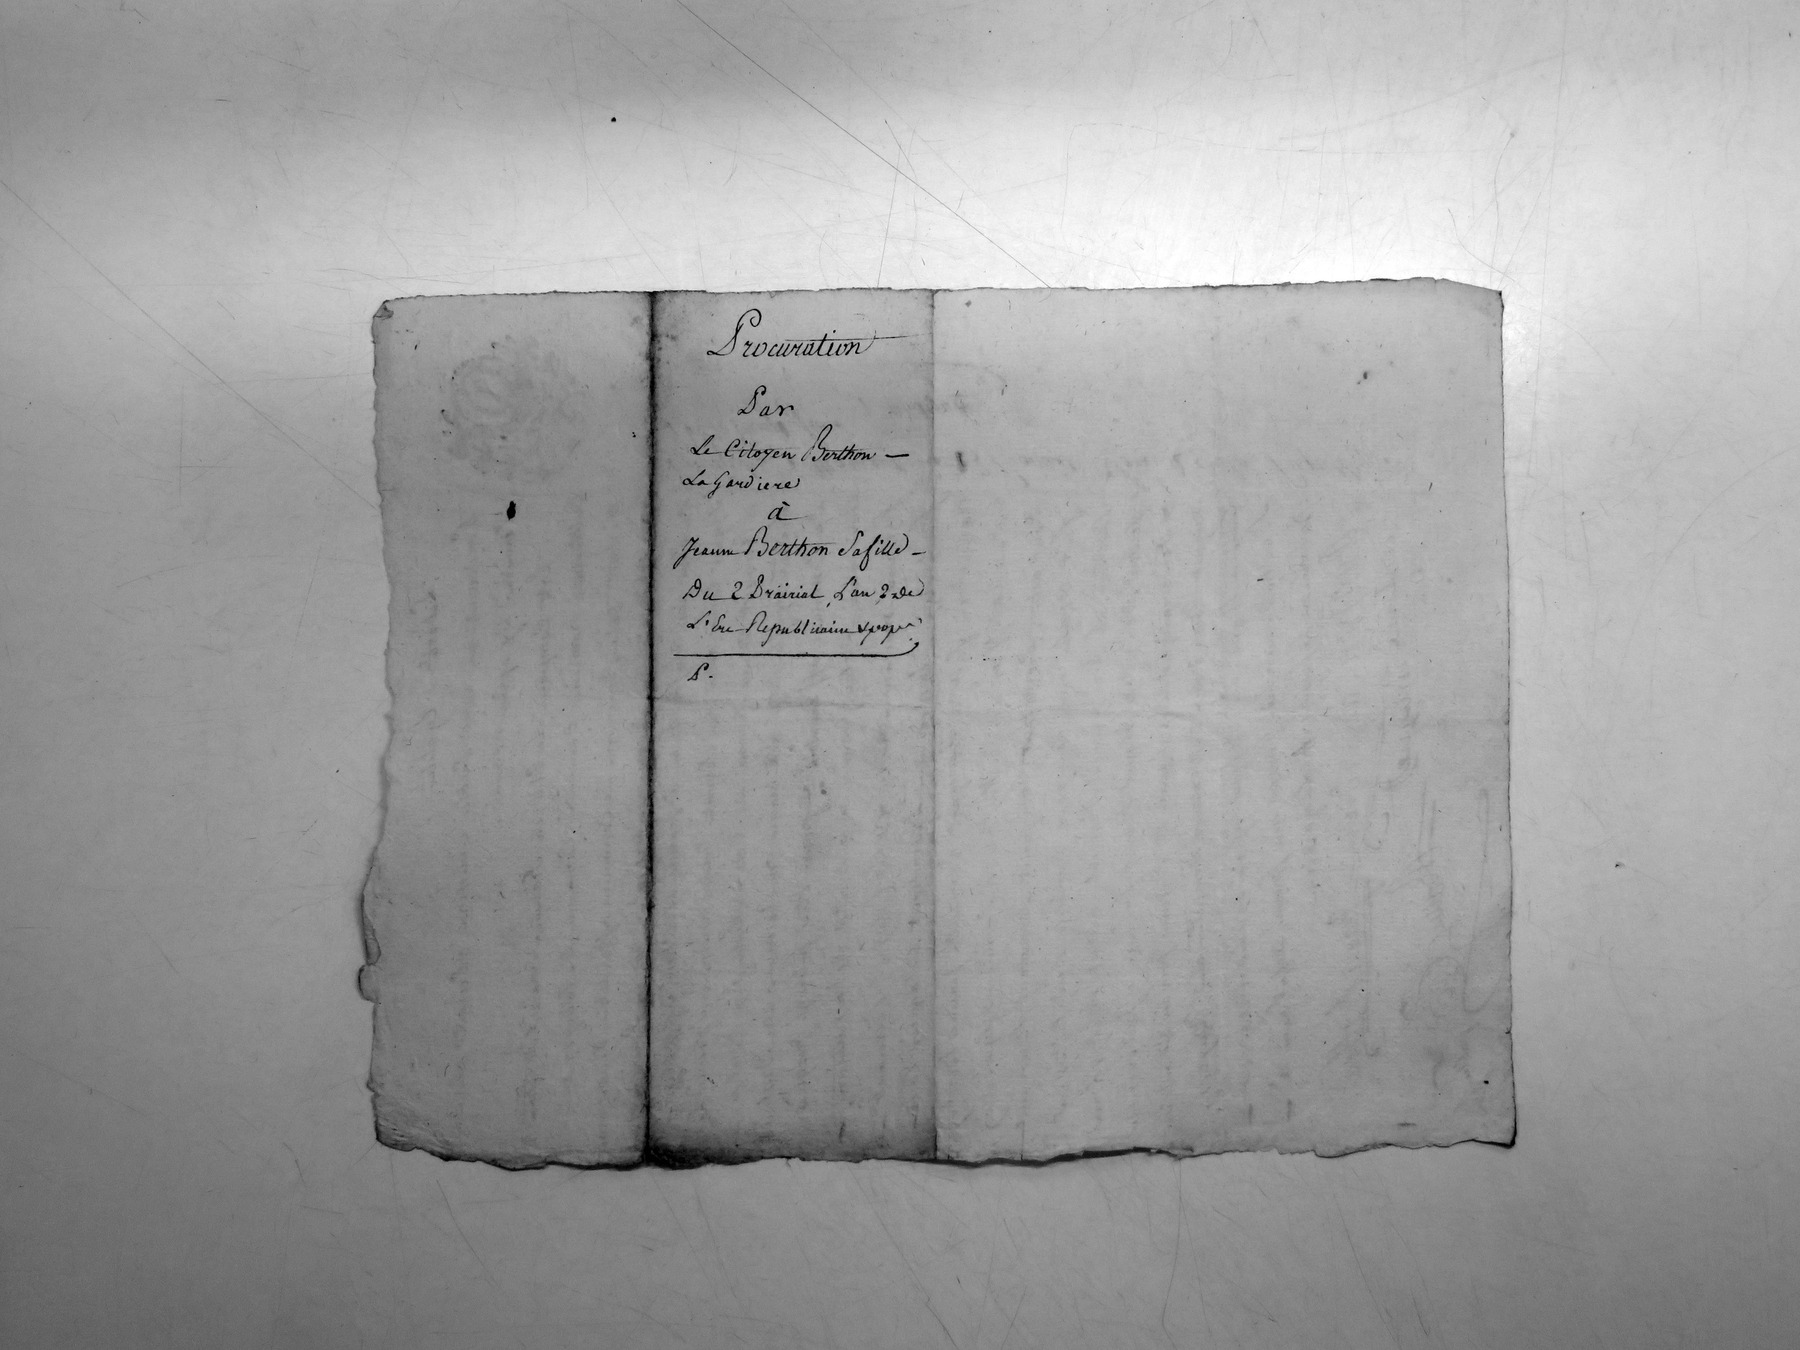 Procuration
Par
Le Citoyen Berthon —
La Gardiere
à
Jeanne Berthon Safille —
Du 2 Prairial, L'an 2 de
L'Ere Republicaine
P.